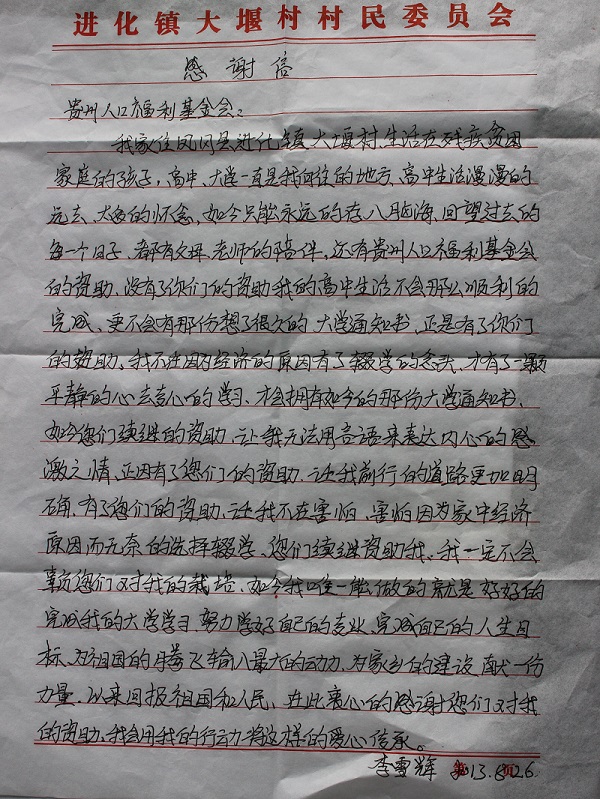 进化镇大堰村村民委员会
感谢信
贵州人口福利基金会：
我家住凤冈县进化镇大堰村，生活在残疾贫困
家庭的孩子，高中、大学一直是我向往的地方，高中生活漫漫的
远去，太多的怀念，如今只能永远的存入脑海，回望过去的
每一个日子，都有父母、老师的陪伴，还有贵州人口福利基金会
的资助，没有了你们的资助我的高中生活不会那么顺利的
完成，更不会有那份想了很久的大学通知书，正是有了你们
的资助，我不在因为经济的原因有了辍学的念头，才有了一颗
平静的心去专心的学习，才会拥有如今的那份大学通知书，
如今您们续继的资助，让我无法用言语来表达内心的感
激之情，正因有了您们的资助，让我前行的道路更加明
确，有了您们的资助，让我不在害怕，害怕因为家中经济
原因而无奈的选择辍学，您们续继资助我，我一定不会
辜负您们对我的栽培，如今我唯一能做的就是好好的
完成我的大学学习，努力学好自己的专业，完成自己的人生目
标，为祖国的腾飞输入最大的动力，为家乡的建设献一份
力量，以来回报祖国和人民，在此衷心的感谢您们对我
的资助，我会用我的行动将这样的爱心传承。
李雪辉 2013.8.26